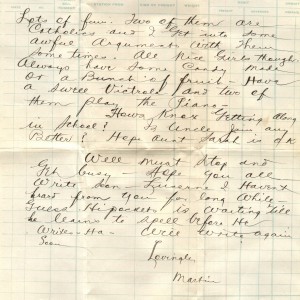 Lots of fun. Two of them are
Catholics and I get into some
awful Arguments with Them
some times. All Nice Girls though.
Always have some Candy made
Or a Bunch of fruit - Have
a Swell Victrola and two of
them play the Piano -
Hows Knox Getting Along
in School? Is Uncle Jim any
Better? Hope Aunt Sarah is O.K
Well Must Stop and
Get busy - Hope you all
Write soon - I havent
hear from you for long while
Guess Hipockets is Waiting till
he learns to Spell before He
Writes - Ha - Well Write again
Soon
Lovingly
Martin